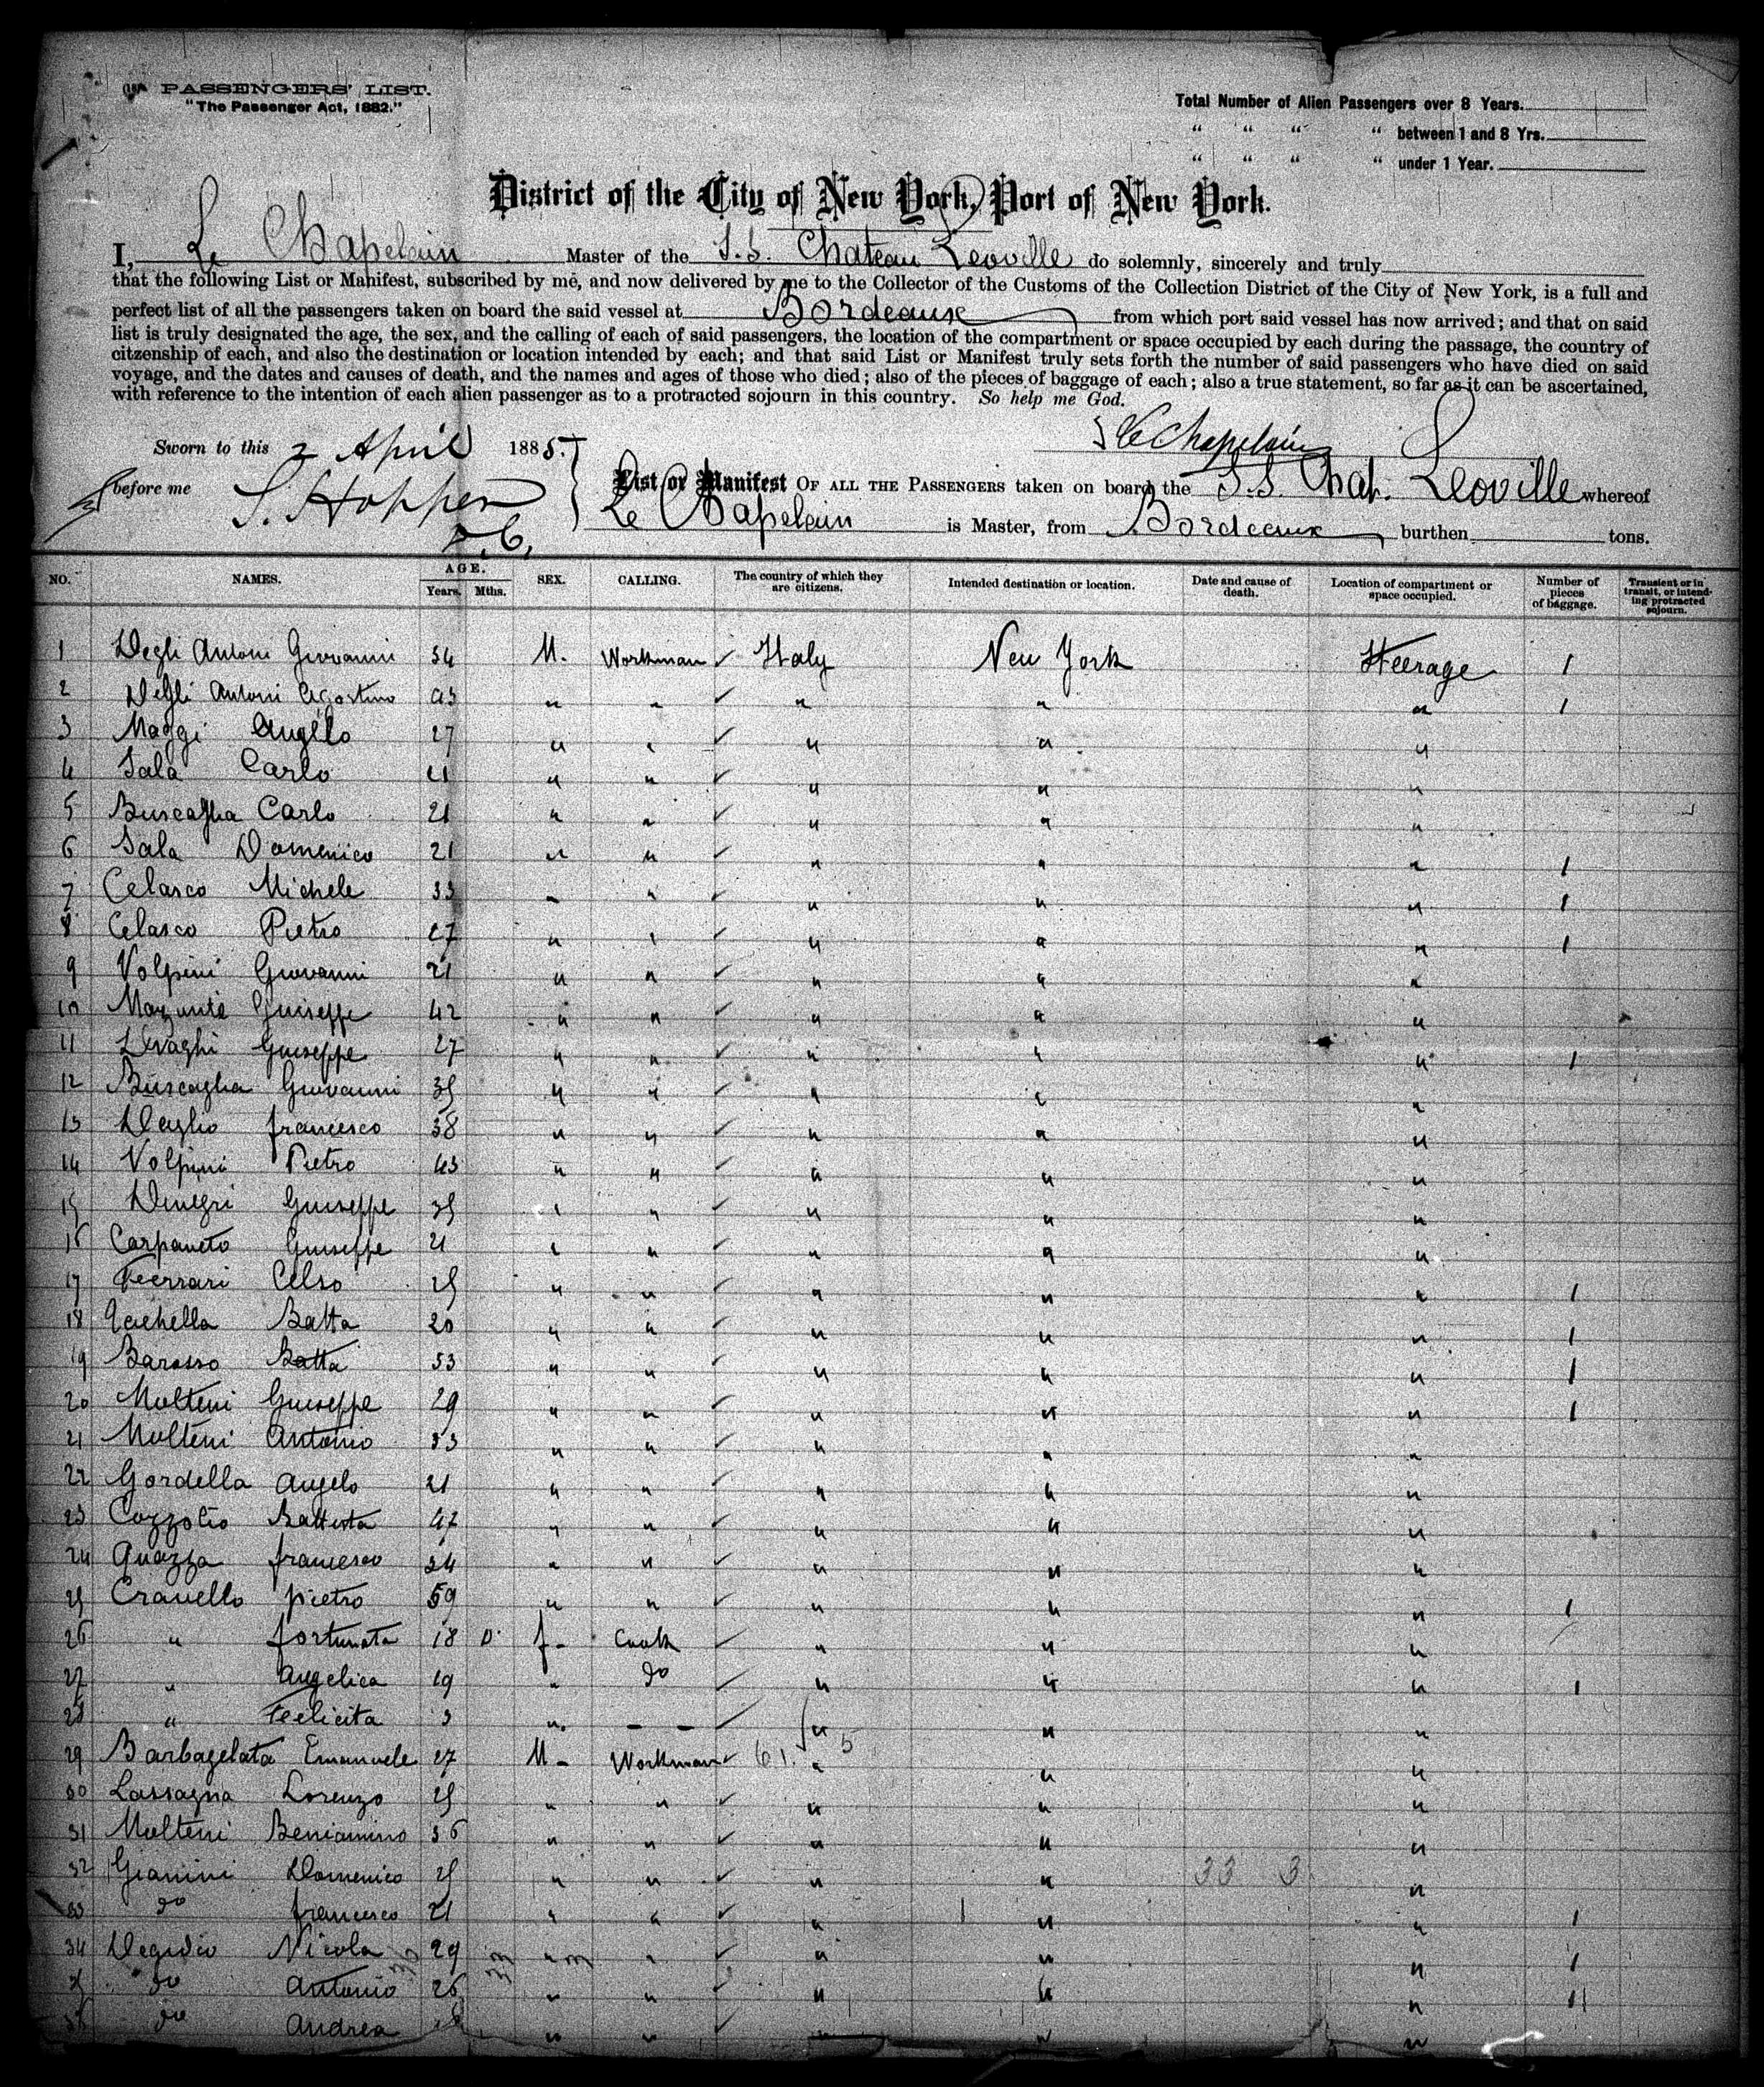 PASSENGERS' LIST.
"The Passenger Act, 1882."
Total Number of Alien Passengers over 8 Years.
" " " " between 1 and 8 Yrs.
" " " " under 1 Year.
District of the City of New York, Port of New York.
I, Le Chapelain Master of the S.S. Chateau Leoville do solemnly, sincerely and truly
that the following List or Manifest, subscribed by me, and now delivered by me to the Collector of the Customs of the Collection District of the City of New York, is a full and
perfect list of all the passengers taken on board the said vessel at Bordeaux from which port said vessel has now arrived; and that on said
list is truly designated the age, the sex, and the calling of each of said passengers, the location of the compartment or space occupied by each during the passage, the country of
citzenship of each, and also the destination or location intended by each; and that said List or Manifest truly sets forth the number of said passengers who have died on said
voyage, and the dates and causes of death, and the names and ages of those who died; also of the pieces of baggage of each; also a true statement, so far as it can be ascertained,
with reference to the intention of each alien passenger as to a protracted sojourn in this country. So help me God.
Le Chapelain
Sworn to this 2 April 1885
before me S. Hopper
D.C.
List or Manifest OF ALL THE PASSENGERS taken on board the S.S. Chat. Leoville whereof
Le Chapelain is Master, from Bordeaux burthen tons.
NO. NAMES. AGE. Years. Mths. SEX. CALLING. The country of which they are citizens. Intended destination or location. Date and cause of death. Location of compartment or space occupied. Number of pieces of baggage. Transient or in transit, or intending protracted sojourn.
1 Degli Antoni Giovanni 34 M. Workman ✓ Italy New York Steerage 1
2 Degli Antoni Agostino " " ✓ " " " 1
3 Maggi Angelo 27 " " ✓ " " "
4 Sala Carlo 21 " " ✓ " " "
5 Buscaglia Carlo 21 " " ✓ " " "
6 Sala Domenico 21 " " ✓ " " " 1
7 Celasco Michele 33 " " ✓ " " " 1
8 Celasco Pietro 27 " " ✓ " " " 1
9 Volpini Giovanni 21 " " ✓ " " "
10 Guiseppe 42 " " ✓ " " "
11 Draghi Guiseppe 27 " " ✓ " " " 1
12 Buscaglia Giovanni 35 " " ✓ " " "
13 Daglio francesco 38 " " ✓ " " "
14 Volpini Pietro 43 " " ✓ " " "
15 Dinegri Guiseppe 35 " " ✓ " " "
16 Carpaneto Guiseppe 21 " " ✓ " " "
17 Ferrari Celso 25 " " ✓ " " " 1
18 Batta 20 " " ✓ " " " 1
19 Barosso Batta 53 " " ✓ " " " 1
20 Molteni Guiseppe 29 " " ✓ " " " 1
21 Molteni Antonio 33 " " ✓ " " "
22 Gordella Angelo 21 " " ✓ " " "
23 Cozzolio Battista 47 " " ✓ " " "
24 Quazza francesco 34 " " ✓ " " "
25 Cravello pietro 59 " " ✓ " " " 1
26 " fortunata 18 f- Cook ✓ " " "
27 " Angelica 19 " do ✓ " " " 1
28 " Felicita 3 " - - ✓ " " "
29 Barbagelata Emanuele 27 M- Workman ✓ 61. " 5 " "
30 Lassagna Lorenzo 25 " " ✓ " " "
31 Molteni Beniamino 36 " " ✓ " " "
32 Gianini Domenico 25 " " ✓ " " 33 3 "
33 do francesco 21 " " ✓ " " " 1
34 Degidio Nicola 29 " " ✓ " " " 1
35 do Antonio 26 " " ✓ " " " 11
36 do Andrea " " ✓ " " "